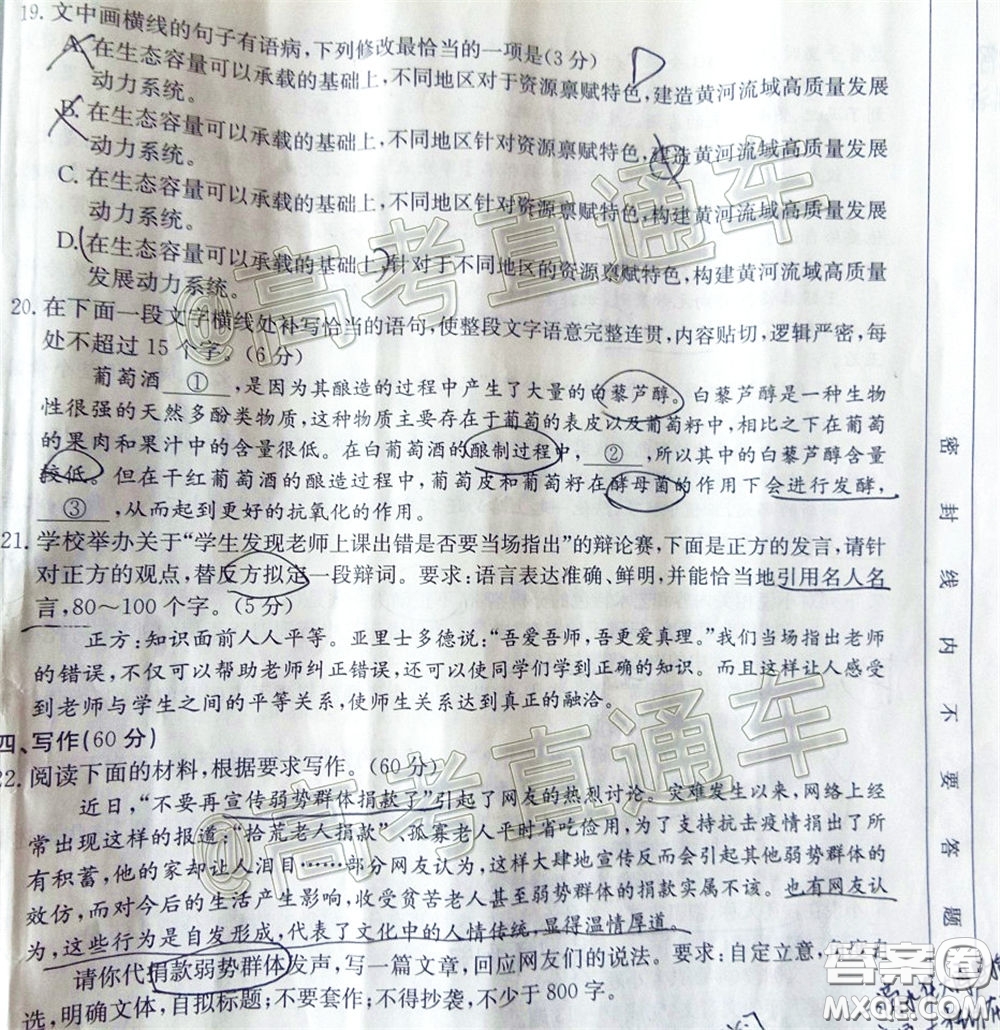 19. 文中画横线的句子有语病,下列修改最恰当的一项是(3分)
A. 在生态容量可以承载的基础上,不同地区对于资源禀赋特色,建造黄河流域高质量发展
动力系统。
B. 在生态容量可以承载的基础上,不同地区针对资源禀赋特色,建造黄河流域高质量发展
动力系统。
C. 在生态容量可以承载的基础上,不同地区针对资源禀赋特色,构建黄河流域高质量发展
动力系统。
D. 在生态容量可以承载的基础上,针对于不同地区的资源禀赋特色,构建黄河流域高质量
发展动力系统。
20. 在下面一段文字横线处补写恰当的语句,使整段文字语意完整连贯,内容贴切,逻辑严密,每
处不超过15个字。(6分)
葡萄酒 ① ,是因为其酿造的过程中产生了大量的白藜芦醇。白藜芦醇是一种生物
性很强的天然多酚类物质,这种物质主要存在于葡萄的表皮以及葡萄籽中,相比之下在葡萄
的果肉和果汁中的含量很低。在白葡萄酒的酿制过程中, ② ,所以其中的白藜芦醇含量
较低。但在干红葡萄酒的酿造过程中,葡萄皮和葡萄籽在酵母菌的作用下会进行发酵,
③ ,从而起到更好的抗氧化的作用。
21. 学校举办关于“学生发现老师上课出错是否要当场指出”的辩论赛,下面是正方的发言,请针
对正方的观点,替反方拟定一段辩词。要求:语言表达准确、鲜明,并能恰当地引用名人名
言,80~100个字。(5分)
正方:知识面前人人平等。亚里士多德说:“吾爱吾师,吾更爱真理。”我们当场指出老师
的错误,不仅可以帮助老师纠正错误,还可以使同学们学到正确的知识。而且这样让人感受
到老师与学生之间的平等关系,使师生关系达到真正的融洽。
四、写作(60分)
22. 阅读下面的材料,根据要求写作。(60分)
近日,“不要再宣传弱势群体捐款了”引起了网友的热烈讨论。灾难发生以来,网络上经
常出现这样的报道:“拾荒老人捐款”、孤寡老人平时省吃俭用,为了支持抗击疫情捐出了所
有积蓄,他的家却让人泪目……部分网友认为,这样大肆地宣传反而会造成其他弱势群体的
效仿,而对今后的生活产生影响,收受贫苦老人甚至弱势群体的捐款实属不该。也有网友认
为,这些行为是自发形成,代表了文化中的人情传统,显得温情厚道。
请你代捐款弱势群体发声,写一篇文章,回应网友们的说法。要求:自定立意,
选,明确文体,自拟标题;不要套作;不得抄袭,不少于800字。
密封线内不要答题
@高考直通车
@高考直通车
答案圈
MXQE.COM